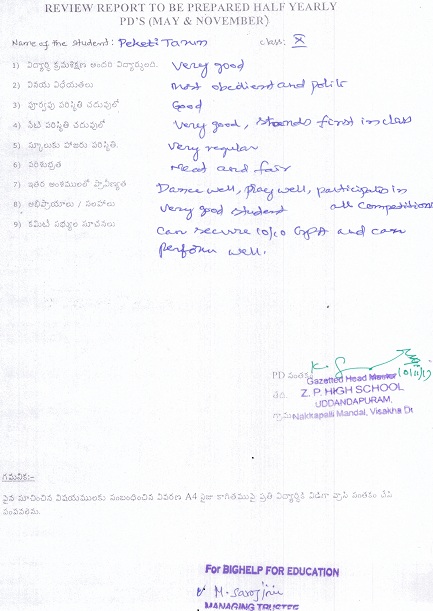 REVIEW REPORT TO BE PREPARED HALF YEARLY
PD'S (MAY & NOVEMBER)
Name of the student: Peketi Tarun class: X
1) విద్యార్థి క్రమశిక్షణ అందరి విద్యార్థులంది. Very good
2) వినయ విధేయతలు most obedient and polite
3) పూర్వపు పరిస్థితి చదువులో Good
4) నేటి పరిస్థితి చదువులో Very good, stands first in class
5) స్కూలుకు హాజరు పరిస్థితి. Very regular
6) పరిశుభ్రత neat and fair
7) ఇతర అంశములలో ప్రావీణ్యత Dance well, play well, participates in all competitions
8) అభిప్రాయాలు / సలహాలు Very good student
9) కమిటీ సభ్యుల సూచనలు Can secure 10/10 GPA and can
perform well.
PD సంతకం
Gazetted Head Master
తేది. Z. P. HIGH SCHOOL
UDDANDAPURAM,
గ్రామం Nakkapalli Mandal, Visakha Dt
గమనిక:-
పైన సూచించిన విషయములకు సంబంధించిన వివరణ A4 సైజు కాగితముపై ప్రతి విద్యార్థికి విడిగా వ్రాసి సంతకం చేసి
పంపవలెను.
For BIGHELP FOR EDUCATION
M. Sarojini
MANAGING TRUSTEE